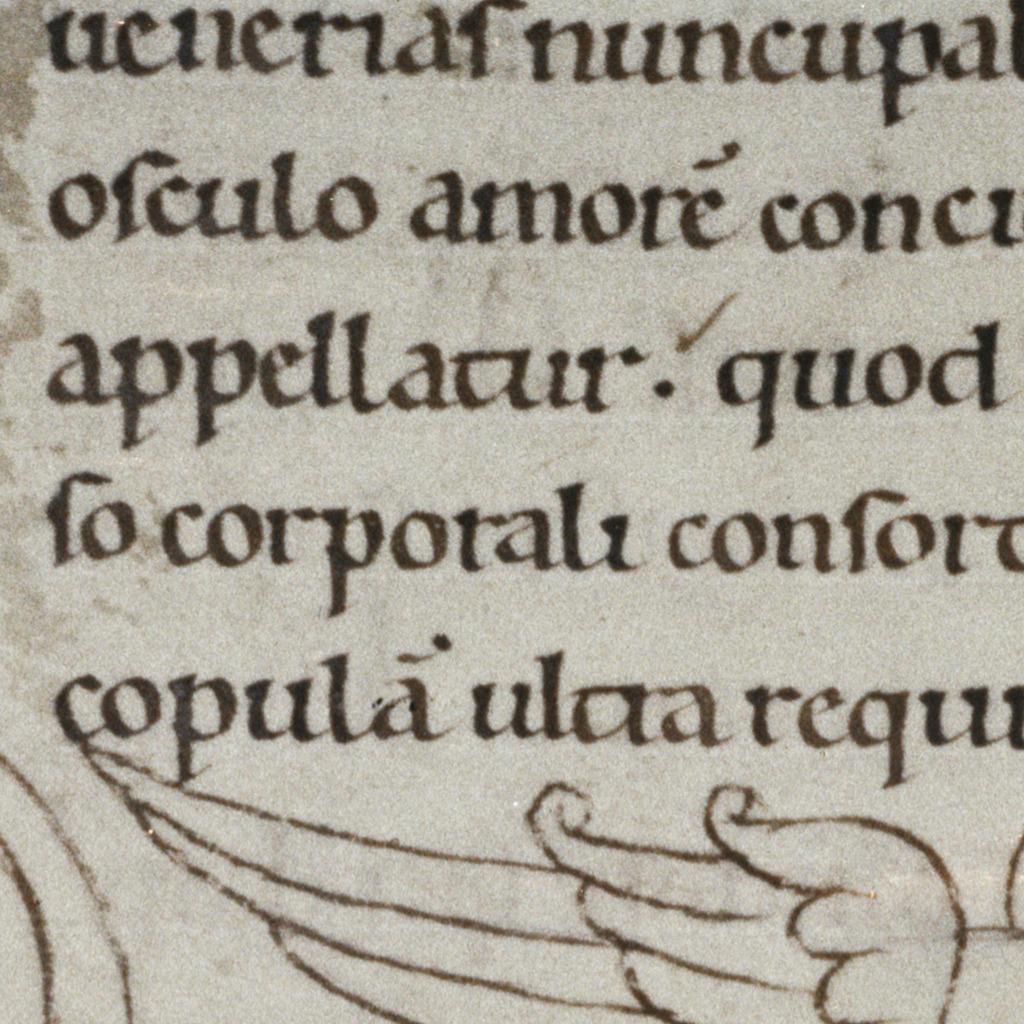 ueneriaſ nuncupab
oſculo amorē concu
appellatur. quod
ſo corporali conſort
copulā ultra requi